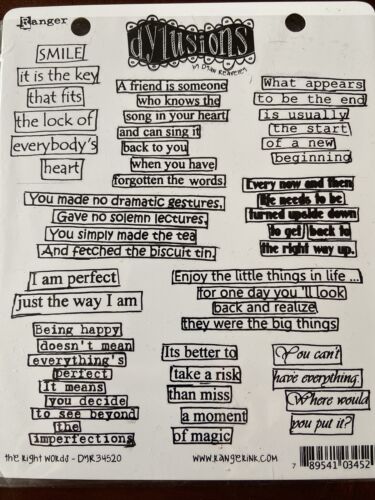 Ranger
dylusions
by Dyan Reaveley
SMILE
it is the key
that fits
the lock of
everybody's
heart
A friend is someone
who knows the
song in your heart
and can sing it
back to you
when you have
forgotten the words
What appears
to be the end
is usually
the start
of a new
beginning
You made no dramatic gestures,
Gave no solemn lectures,
You simply made the tea
And fetched the biscuit tin.
Every now and then
life needs to be
turned upside down
To get back to
the right way up.
I am perfect
just the way I am
Enjoy the little things in life ...
for one day you 'll look
back and realize
they were the big things
Being happy
doesn't mean
everything's
perfect
It means
you decide
to see beyond
the
imperfections
Its better to
take a risk
than miss
a moment
of magic
You can't
have everything.
Where would
you put it?
the Right Words - DYR34520
www.RANGERINK.COM
7 89541 03452